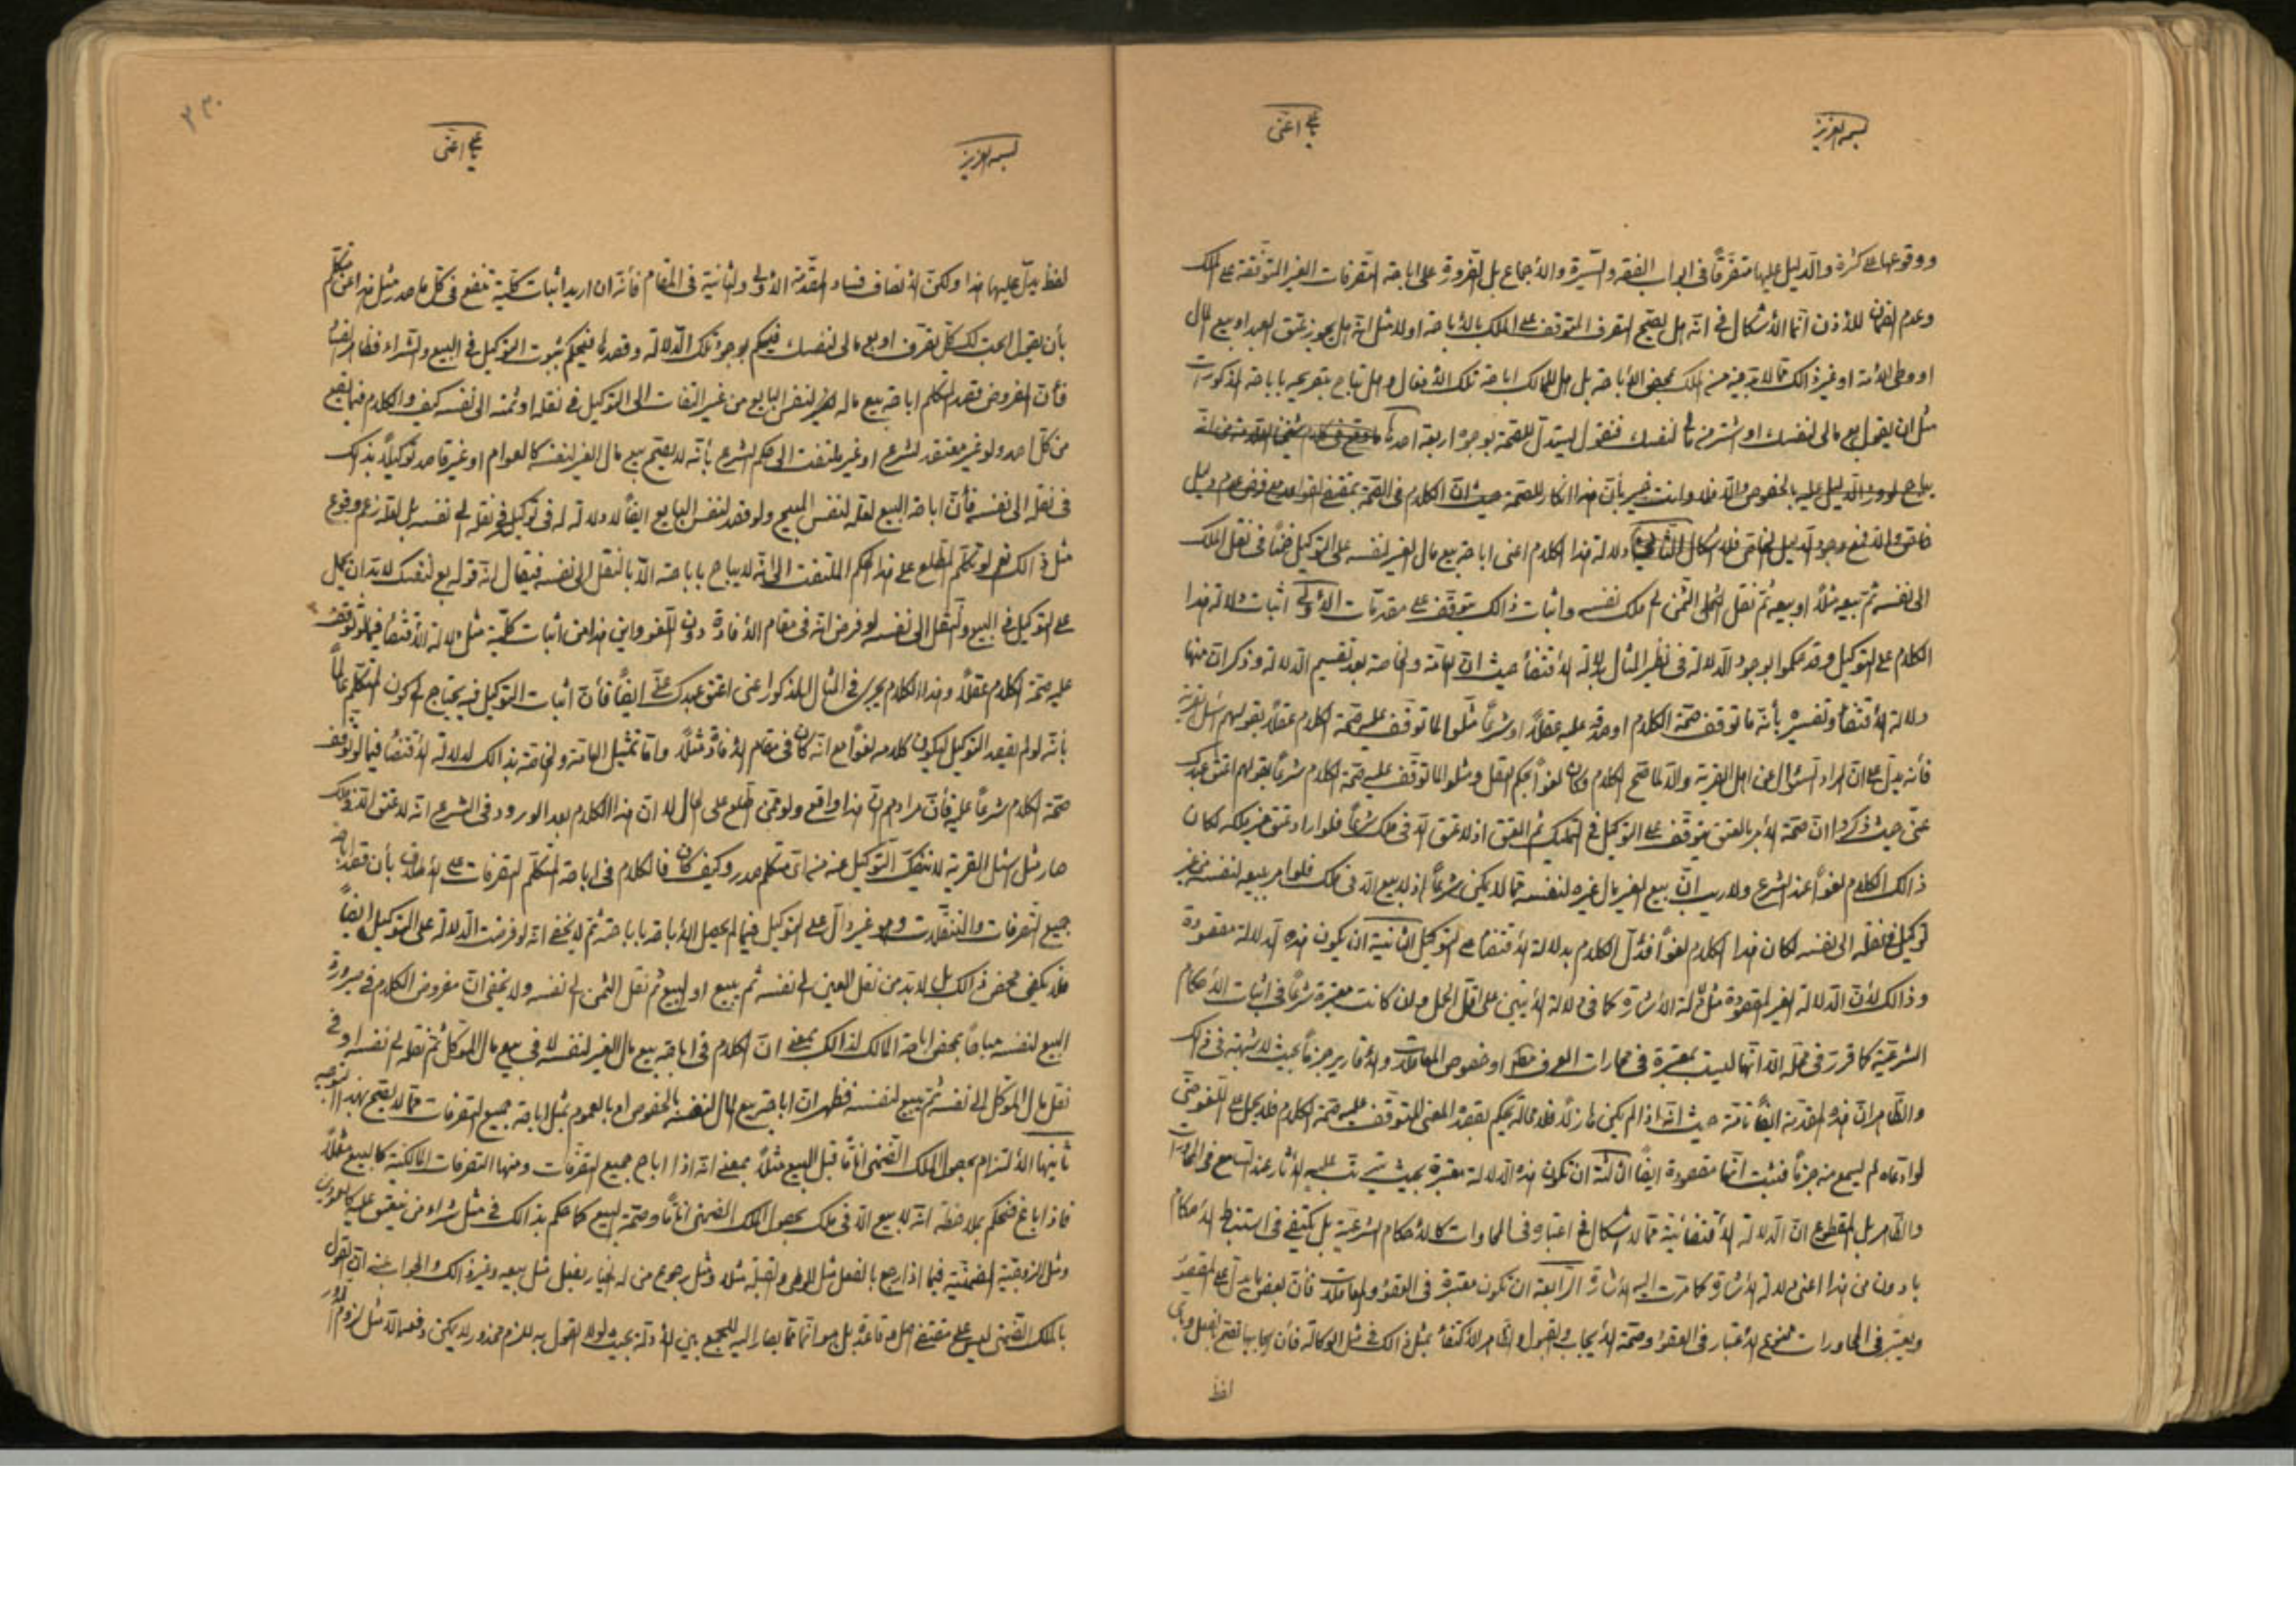 بسمه العزيز
يا علي اغثنى
ووقوعها على كثرة والدليل عليها متفرقاً فى ابواب الفقه والسيرة والأجماع بل الضرورة على اباحة التصرفات الغير المتوقفة على الملك
وعدم الضمان للأذن انما الأشكال فى انه هل يصح التصرف المتوقف على الملك بالأباحة اولا مثل انه هل يجوز عتق العبد او بيع المال
او وطى الأمة او غير ذالك مما لابد فيه من الملك بمحض الأباحة بل هل للمالك اباحة تلك الأفعال وهل تباح بتصريحه باباحة المذكورات
مثل ان يقول بع مالى لنفسك او اشتر من مالى لنفسك فنقول يستدل للصحة بوجوه اربعة احدها
يباح لورود الدليل عليه بالخصوص والا فلا وانت خبير بأن هذا انكار للصحة حيث ان الكلام فى الصحة بمقتضى القواعد مع فرض عدم دليل
خاص والا فمع وجود الدليل الخاص فلا اشكال الثانى دلالة هذا الكلام اعنى اباحة بيع مال الغير لنفسه على التوكيل ضمناً فى نقل الملك
الى نفسه ثم بيعه مثلاً او بيعه ثم نقل الثمن الى ملك نفسه واثبات ذالك يتوقف على مقدمات الأولى اثبات دلالة هذا
الكلام على التوكيل وقد حكموا بوجود الدلالة فى نظير المثال بدلالة الأقتضاء حيث ان العامة والخاصة بعد تقسيم الدلالة وذكر ان منها
دلالة الأقتضاء وتفسيره بأنه ما توقف صحة الكلام او صدقه عليه عقلاً او شرعاً مثلوا لما توقف عليه صحة الكلام عقلاً بقولهم اسئل القرية
فأنه يدل على ان المراد السؤال عن اهل القرية والا لما صح الكلام وكان لغواً بحكم العقل ومثلوا لما توقف عليه صحة الكلام شرعاً بقولهم اعتق عبدك
عنى حيث ذكروا ان صحة الأمر بالعتق يتوقف على التوكيل فى التمليك ثم العتق اذ لا عتق الا فى ملك شرعاً فلو اراد عتق غير ملكه لكان
ذالك الكلام لغواً عند الشرع ولا ريب ان بيع الغير مال غيره لنفسه مما لا يكون شرعاً اذ لا بيع الا فى ملك فلو امر ببيعه لنفسه من غير
توكيل فى نقله الى نفسه لكان هذا الكلام لغواً فدل الكلام بدلالة الأقتضاء على التوكيل الثانية ان يكون هذه الدلالة مقصودة
وذالك لأن الدلالة الغير المقصودة مثل دلالة الأشارة كما فى دلالة الأيتين على اقل الحمل وان كانت معتبرة شرعاً فى اثبات الأحكام
الشرعية كما قرر فى محله الا انها ليست بمعتبرة فى محاورات العرف او خصوص المعاملات والأقارير جزماً بحيث لا شبهة فى ذالك
والظاهر ان هذه المقدمة ايضاً تامة حيث انه اذا لم يكن هازلاً فلا محالة يحكم بقصد المعنى المتوقف عليه صحة الكلام فلا يحمل على اللغو حتى
لو ادعاه لم يسمع منه جزماً فثبت انها مقصودة ايضاً الثالثة ان تكون هذه الدلالة معتبرة بحيث يترتب عليه الأثار عند السامع فى المحاورات
والظاهر بل المقطوع ان الدلالة الأقتضائية مما لا اشكال فى اعتباره فى المحاورات كالأحكام الشرعية بل يكتفى فى استنباط الأحكام
بادون من هذا اعنى دلالة الأشارة كما مرت اليه الأشارة الرابعة ان تكون معتبرة فى العقود والمعاملات فأن بعض ما يدل على المقصود
ويعتبر فى المحاورات ممنوع الأعتبار فى العقود وصحة الأيجاب والقبول والظاهر الأكتفاء بمثل ذالك فى مثل الوكالة فأن ايجابها تصح بالفعل وبأى
لفظ
٢٣٠
بسمه العزيز
يا علي اغثنى
لفظ يدل عليها هذا ولكن الأنصاف فساد المقدمة الأولى والثانية فى المقام فأنه ان اريد اثبات كلية تنفع فى كل ما صدر مثل هذا عن متكلم
بأن يقول ابحت لك كل تصرف او بع مالى لنفسك فيحكم بوجود تلك الدلالة وقصدها فيحكم بثبوت التوكيل فى البيع والشراء فظاهر الفساد
فأن المفروض قصد المتكلم اباحة بيع ماله لنفس البايع من غير التفات الى التوكيل فى نقله او ثمنه الى نفسه كيف والكلام فيما يقع
من كل احد ولو غير معتقد لشرع او غير ملتفت الى حكم الشرع بأنه لا يصح بيع مال الغير لنفسه كالعوام او غير قاصد توكيلاً بذالك
فى نقله الى نفسه فأن اباحة البيع لعله لنفس المبيح ولو قصد لنفس البايع ايضاً لا دلالة له فى توكيل فى نقله الى نفسه بل لعله زعم وقوع
مثل ذالك نعم لو تكلم المطلع على هذا الحكم الملتفت الى انه لا يباح باباحة الا بالنقل الى نفسه فيقال ان قوله بع لنفسك لابد ان يحمل
على التوكيل فى البيع والنقل الى نفسه لو فرض انه فى مقام الأفادة دون اللغو واين هذا من اثبات كلية مثل دلالة الأقتضاء فيما لو توقف
عليه صحة الكلام عقلاً وهذا الكلام يجرى فى المثال المذكور اعنى اعتق عبدك عنى ايضاً فأن اثبات التوكيل فيه يحتاج الى كون المتكلم عالماً
بأنه لو لم يقصد التوكيل ليكون كلامه لغواً مع انه كان فى مقام الأفادة مثلاً واما تمثيل العامة والخاصة بذالك لدلالة الأقتضاء فيما لو توقف
صحة الكلام شرعاً عليه فأن مرادهم ان هذا واقع ولو ممن اطلع على الحال لا ان هذا الكلام بعد الورود فى الشرع انه لا عتق الا فى ملك
صار مثل اسئل القرية لا ينفك التوكيل عنه من اى متكلم صدر وكيف كان فالكلام فى اباحة المتكلم التصرفات على الأطلاق بأن قصد اباحة
جميع التصرفات والتنقلات وهو غير دال على التوكيل فيما لم يحصل الأباحة باباحته ثم لا يخفى انه لو فرضت الدلالة على التوكيل ايضاً
فلا يكفى محض ذالك بل لابد من نقل العين الى نفسه ثم يبيع او البيع ثم نقل الثمن الى نفسه ولا يخفى ان مفروض الكلام فى صيرورة
البيع لنفسه مباحاً بمحض اباحة المالك لذالك بمعنى ان الكلام فى اباحة بيع مال الغير لنفسه لا فى بيع مال الموكل ثم نقله الى نفسه او فى
نقل مال الموكل الى نفسه ثم يبيع لنفسه فظهر ان اباحة بيع المال لنفسه بالخصوص او بالعموم بمثل اباحة جميع التصرفات مما لا يصح بهذا التوجيه
ثانيها الألتزام بحصول الملك الضمنى اناً ما قبل البيع مثلاً بمعنى انه اذا اباح جميع التصرفات ومنها التصرفات المالكية كالبيع مثلاً
فاذا باع فنحكم بملاحظة انه لا بيع الا فى ملك بحصول الملك الضمنى اناً ما وصحة البيع كما حكم بذالك فى مثل شراء من ينعتق عليه كالعمودين
ومثل الزوجية الضمنية فيما اذا رجع بالفعل مثل الوطى والقبلة مثلاً ومثل رجوع من له الخيار بفعل مثل بيعه وغير ذالك والجواب عنه ان القول
بالملك الضمنى ليس على مقتضى اصل وقاعدة بل هو انما مما يصار اليه للجمع بين الأدلة بحيث لولا القول به للزم محذور لا يمكن دفعه الا مثل لزوم الدور